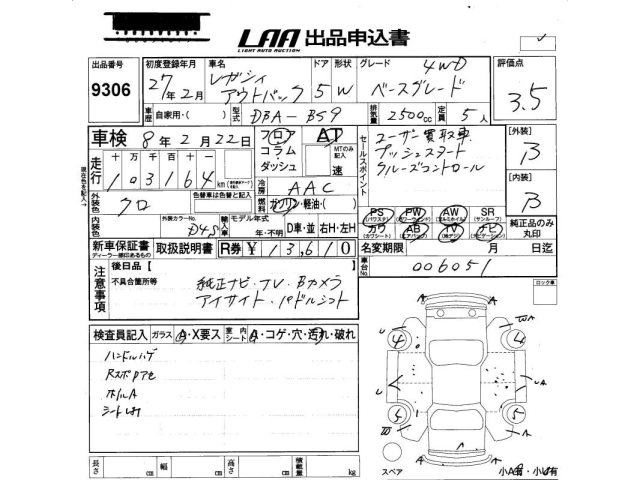 LAA 出品申込書
LIGHT AUTO AUCTION
出品番号 9306
初度登録年月 27年2月
車名 レガシィ アウトバック
ドア 5 形状 W
グレード 4WD ベースグレード
評価点 3.5
車歴 自家用・( )
型式 DBA-BS9
排気量 2500cc
定員 5人
車検 8年2月22日
フロア コラム・ダッシュ
AT
MTのみ記入 速
セールスポイント
ユーザー買取車
プッシュスタート
クルーズコントロール
[外装] B
[内装] B
走行 十 万 千 百 十 一
103164 km
冷房 AAC
燃料 ガソリン・軽油・( )
外装色 クロ
色替車は色替と記入
内装色
外装カラーNo. D4S
輸入車 モデル年式 年・不明
D車・並 右H・左H
PS (パワステ) PW (パワーウィンドウ) AW (アルミホイル) SR (サンルーフ)
カワ (カワシート) AB (エアバック) TV (テレビ) ナビ (ナビゲーション)
純正品のみ丸印
新車保証書 ディーラー捺印あるもの
取扱説明書
R券 ¥13,610
名変期限 月 日迄
車台No. 006051
注意事項
後日品 [ ]
不具合箇所等
純正ナビ・TV・Bカメラ
アイサイト・パドルシフト
ロック車
検査員記入 ガラス A・X要ス 室内シート A・コゲ・穴・汚れ・破れ
ハンドルハゲ
ホイルA
長さ cm 幅 cm 高さ cm 積載量 kg
スペア